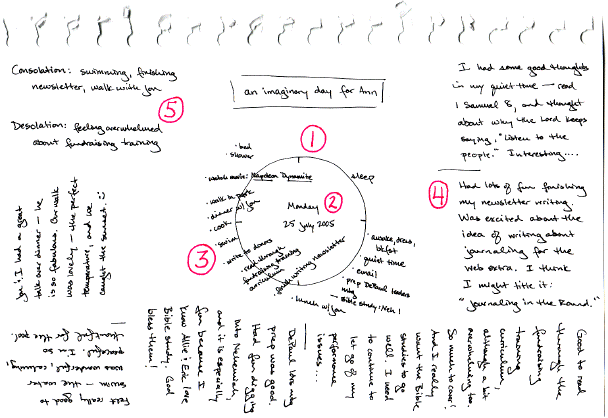 Consolation: swimming, finishing
newsletter, walk with you
5
Desolation: feeling overwhelmed
about fundraising training
an imaginary day for Ann
1
I had some good thoughts
in my quiet time - read
1 Samuel 8, and thought
about why the Lord keeps
saying, "Listen to the
people." Interesting....
4
Had lots of fun finishing
my newsletter writing.
Was excited about the
idea of writing about
journaling for the
web extra. I think
I might title it:
"Journaling in the Round."
Good to read
through the
fundraising
training
curriculum,
although a bit
overwhelming too.
So much to cover!
And I really
want the Bible
studies to go
well. I need
to continue to
let go of my
performance
issues...
DePaul ldrs mtg
prep was good.
Had fun digging
into Nehemiah,
and it is especially
fun because I
know Allie & Eric love
Bible study. God
bless them!
Felt really good to
swim - the water
was wonderful, calming,
peaceful. I'm so
thankful for the pool.
I had a great
talk over dinner - he
is so fabulous. Our walk
was lovely - the perfect
temperature, and we
caught the sunset. :)
2
Monday
25 July 2005
sleep
· awake, dress,
bkfst
· quiet time
· email
· prep DePaul leaders
mtg
- Bible study: Neh 1
· lunch w/ you
· finish writing newsletter
3
· read through
fundraising training
curriculum
· write to donors
· swim
· cook
· dinner w/ you
· walk in park
· watch movie: Napoleon Dynamite
· shower
· bed